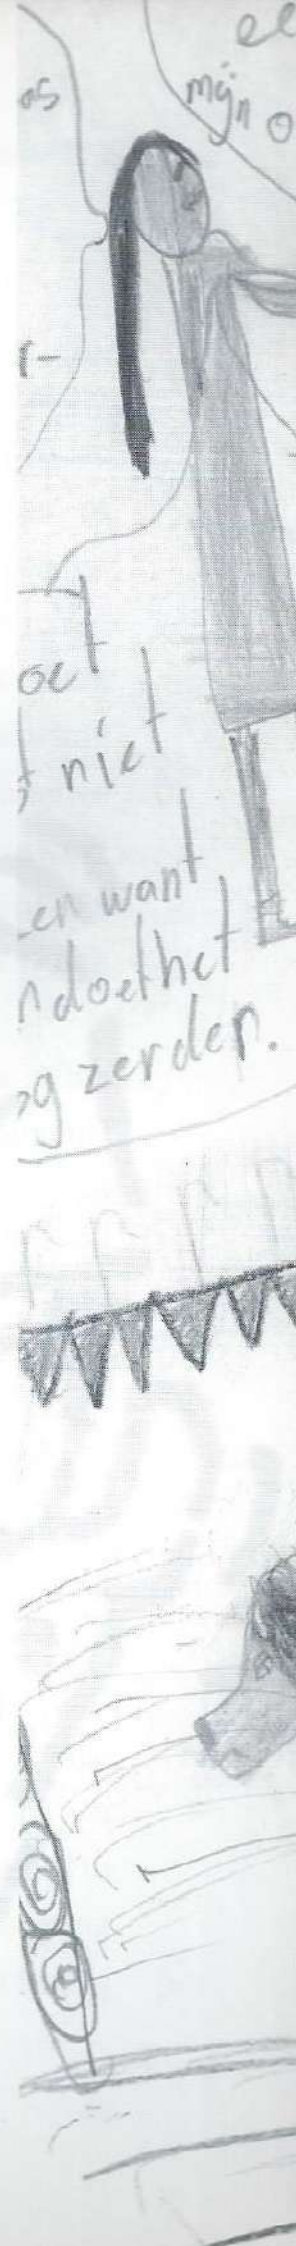 ee
as
mijn o
r-
oet
t niet
en want
n doethet
og zerder.